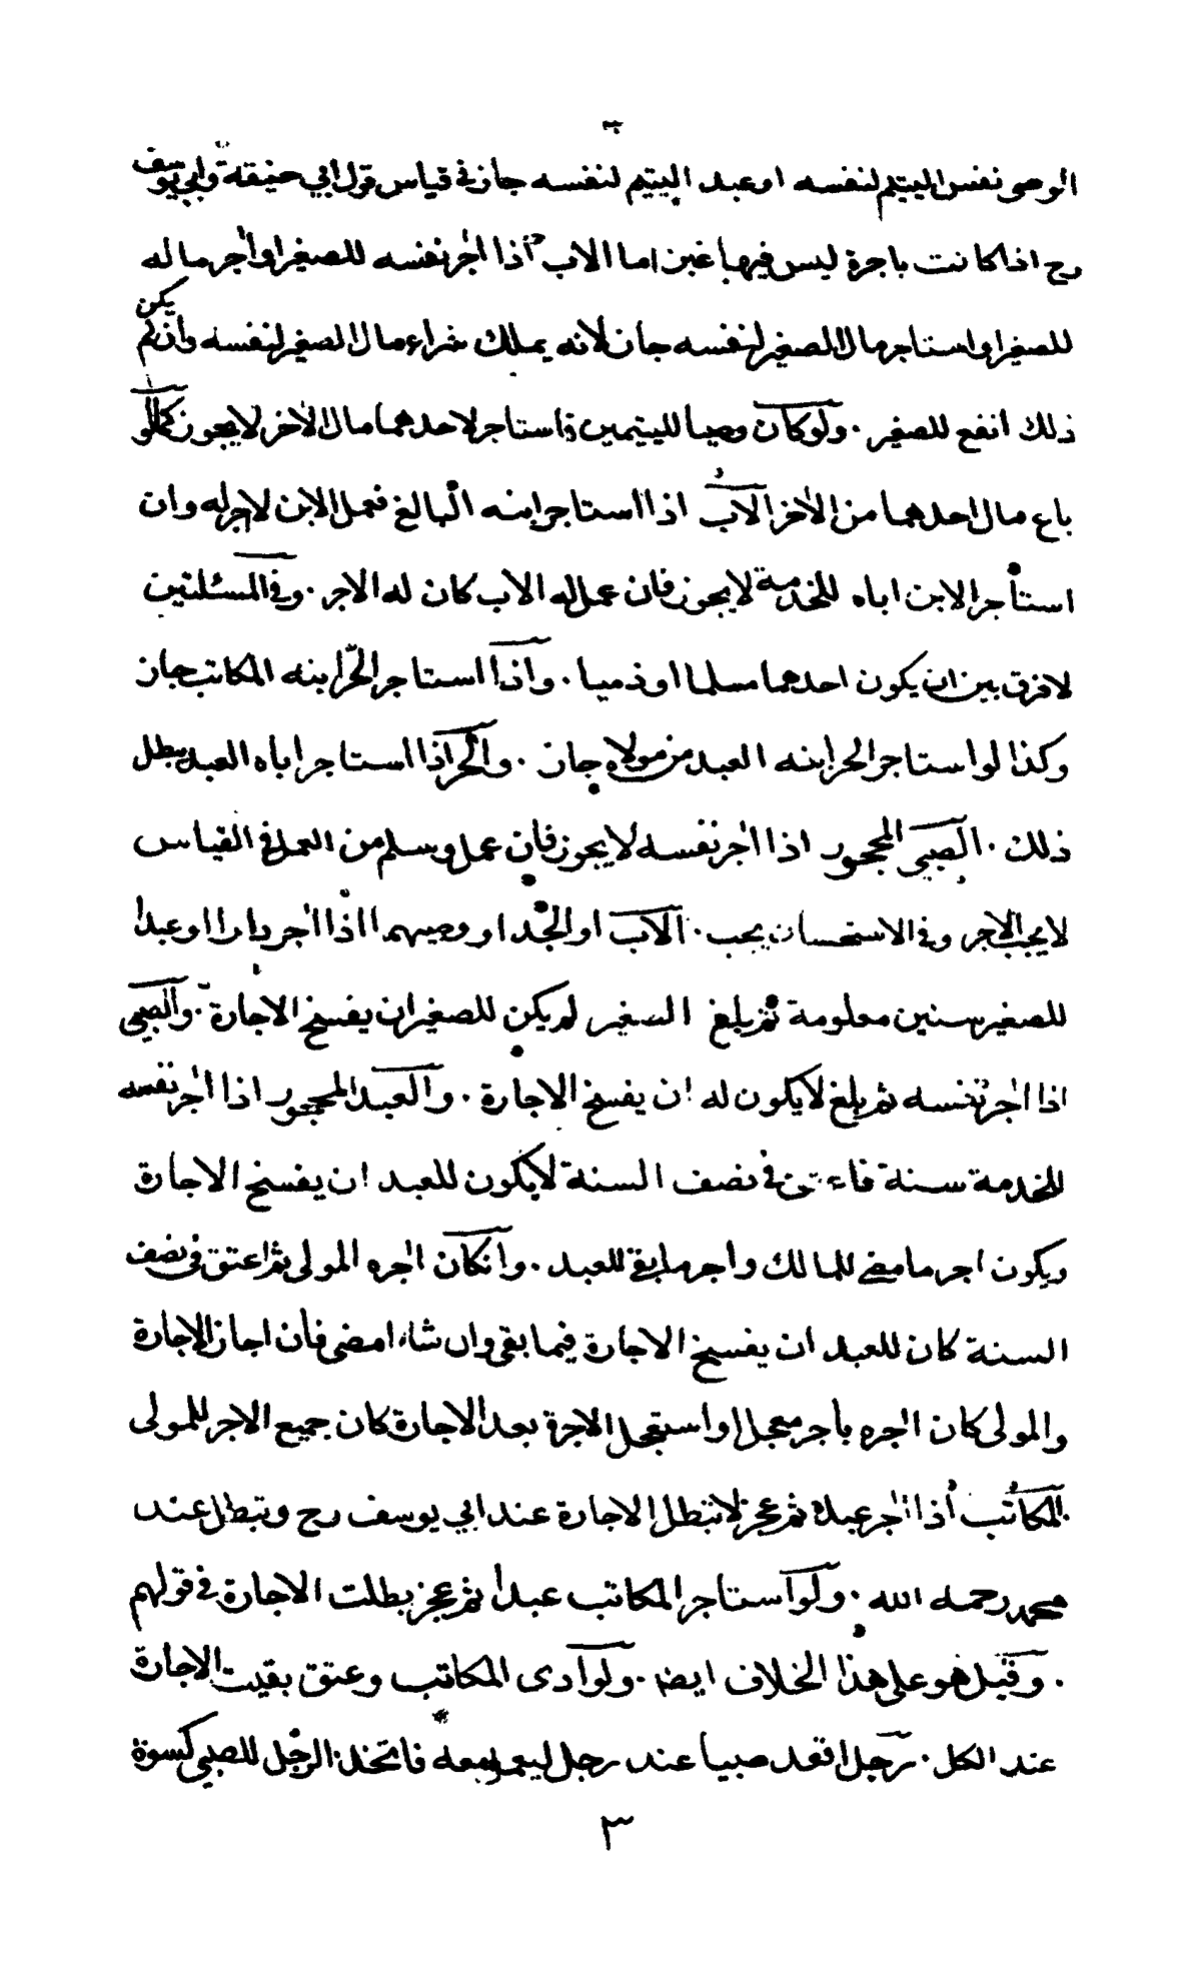 ٣
الوصى نفس اليتيم لنفسه او عبد اليتيم لنفسه جاز في قياس قول ابي حنيفة وابي يوسف
رح اذا كانت باجرة ليس فيها غبن اما الاب اذا اٰجر نفسه للصغير او اٰجر ماله
للصغير او استاجر مال الصغير لنفسه جاز لانه يملك شراء مال الصغير لنفسه وان لم يكن
ذلك انفع للصغير . ولو كان وصيا لليتيمين فاستاجر لاحدهما مال الاٰخر لا يجوز كما لو
باع مال احدهما من الاٰخر الاب اذا استاجر ابنه البالغ فعمل الابن لا اجر له وان
استأجر الابن اباه للخدمة لا يجوز فان عمل له الاب كان له الاجر . وفي المسئلتين
لا فرق بين ان يكون احدهما مسلما او ذميا . واذا استاجر الحر ابنه المكاتب جاز
وكذا لو استاجر الحر ابنه العبد من مولاه جاز . والحر اذا استاجر اباه العبد يبطل
ذلك . الصبي المحجور اذا اٰجر نفسه لا يجوز فان عمل وسلم من العمل في القياس
لا يجب الاجر وفي الاستحسان يجب . الاب او الجد او وصيهما اذا اٰجر دارا او عبدا
للصغير سنين معلومة ثم بلغ السغير لم يكن للصغير ان يفسخ الاجارة . والصبي
اذا اٰجر نفسه ثم بلغ لا يكون له ان يفسخ الاجارة . والعبد المحجور اذا اٰجر نفسه
للخدمة سنة فاعتق في نصف السنة لا يكون للعبد ان يفسخ الاجارة
ويكون اجر ما مضى للمالك واجر ما بقي للعبد . وان كان اٰجره المولى ثم اعتق في نصف
السنة كان للعبد ان يفسخ الاجارة فيما بقي وان شاء امضى فان اجاز الاجارة
والمولى كان اٰجره بأجر معجل او استعجل الاجرة بعد الاجارة كان جميع الاجر للمولى
المكاتب اذا اٰجر عبده ثم عجز لا تبطل الاجارة عند ابي يوسف رح وتبطل عند
محمد رحمه الله . ولو استاجر المكاتب عبدا ثم عجز بطلت الاجارة في قولهم
. وقيل هو على هذا الخلاف ايضا . ولو ادى المكاتب وعتق بقيت الاجارة
عند الكل . رجل اقعد صبيا عند رجل ليعمل معه فاتخذ الرجل للصبي كسوة
٣